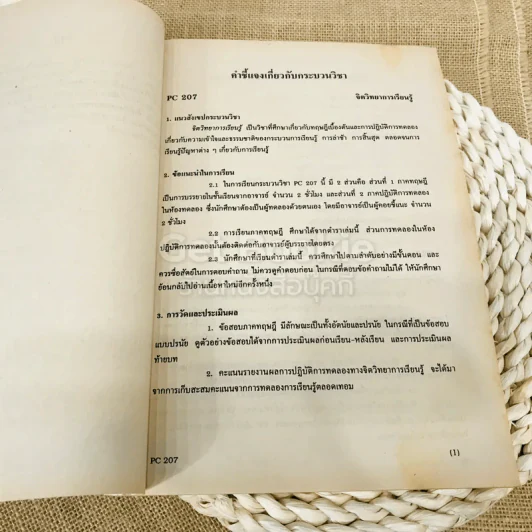 คำชี้แจงเกี่ยวกับกระบวนวิชา
PC 207 จิตวิทยาการเรียนรู้
1. แนวสังเขปกระบวนวิชา
จิตวิทยาการเรียนรู้ เป็นวิชาที่ศึกษาเกี่ยวกับทฤษฎีเบื้องต้นและการปฏิบัติการทดลอง
เกี่ยวกับความเข้าใจและธรรมชาติของกระบวนการเรียนรู้ การล่าช้า การสิ้นสุด ตลอดจนการ
เรียนรู้ปัญหาต่าง ๆ เกี่ยวกับการเรียนรู้
2. ข้อแนะนำในการเรียน
2.1 ในการเรียนกระบวนวิชา PC 207 นี้ มี 2 ส่วนคือ ส่วนที่ 1 ภาคทฤษฎี
เป็นการบรรยายในชั้นเรียนจากอาจารย์ จำนวน 2 ชั่วโมง และส่วนที่ 2 ภาคปฏิบัติการทดลอง
ในห้องทดลอง ซึ่งนักศึกษาต้องเป็นผู้ทดลองด้วยตนเอง โดยมีอาจารย์เป็นผู้คอยชี้แนะ จำนวน
2 ชั่วโมง
2.2 การเรียนภาคทฤษฎี ศึกษาได้จากตำราเล่มนี้ ส่วนการทดลองในห้อง
ปฏิบัติการทดลองนั้นต้องติดต่อกับอาจารย์ผู้บรรยายโดยตรง
2.3 นักศึกษาที่เรียนตำราเล่มนี้ ควรศึกษาไปตามลำดับอย่างมีขั้นตอน และ
ควรซื่อสัตย์ในการตอบคำถาม ไม่ควรดูคำตอบก่อน ในกรณีที่ตอบข้อคำถามไม่ได้ ให้นักศึกษา
ย้อนกลับไปอ่านเนื้อหาใหม่อีกครั้งหนึ่ง
3. การวัดและประเมินผล
1. ข้อสอบภาคทฤษฎี มีลักษณะเป็นทั้งอัตนัยและปรนัย ในกรณีที่เป็นข้อสอบ
แบบปรนัย ดูตัวอย่างข้อสอบได้จากการประเมินผลก่อนเรียน-หลังเรียน และการประเมินผล
ท้ายบท
2. คะแนนรายงานผลการปฏิบัติการทดลองทางจิตวิทยาการเรียนรู้ จะได้มา
จากการเก็บสะสมคะแนนจากการทดลองการเรียนรู้ตลอดเทอม
PC 207 (1)